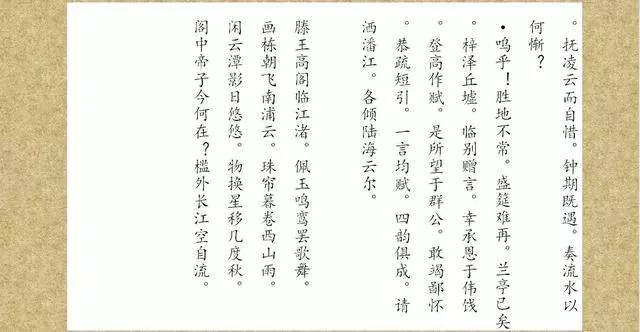 。抚凌云而自惜。钟期既遇。奏流水以
何惭？
•呜乎！胜地不常。盛筵难再。兰亭已矣
。梓泽丘墟。临别赠言。幸承恩于伟饯
。登高作赋。是所望于群公。敢竭鄙怀
。恭疏短引。一言均赋。四韵俱成。请
洒潘江。各倾陆海云尔。
滕王高阁临江渚。佩玉鸣鸾罢歌舞。
画栋朝飞南浦云。珠帘暮卷西山雨。
闲云潭影日悠悠。物换星移几度秋。
阁中帝子今何在？槛外长江空自流。